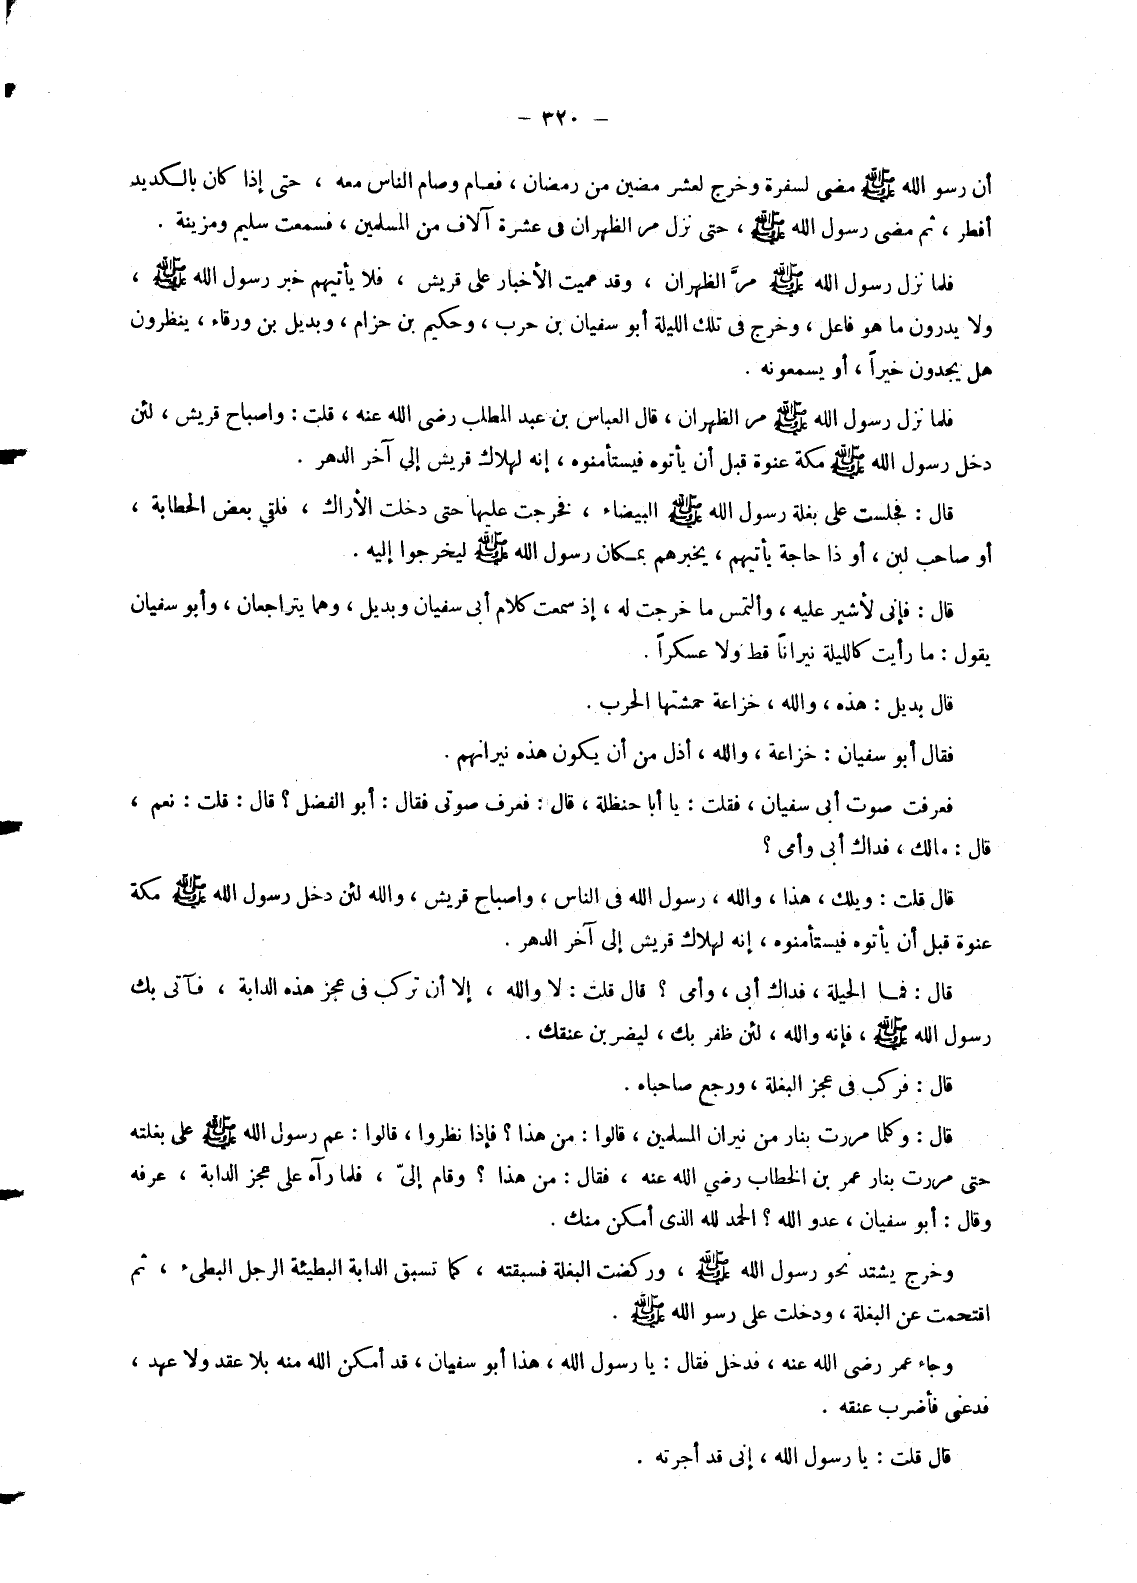 – ٣٢٠ –
أن رسو الله ﷺ مضى لسفرة وخرج لعشر مضين من رمضان ، فصام وصام الناس معه ، حتى إذا كان بالكديد
أفطر ، ثم مضى رسول الله ﷺ ، حتى نزل مر الظهران فى عشرة آلاف من المسلمين ، فسمعت سليم ومزينة .
فلما نزل رسول الله ﷺ مرَّ الظهران ، وقد عميت الأخبار على قريش ، فلا يأتيهم خبر رسول الله ﷺ ،
ولا يدرون ما هو فاعل ، وخرج فى تلك الليلة أبو سفيان بن حرب ، وحكيم بن حزام ، وبديل بن ورقاء ، ينظرون
هل يجدون خبراً ، أو يسمعونه .
فلما نزل رسول الله ﷺ مر الظهران ، قال العباس بن عبد المطلب رضى الله عنه ، قلت : واصباح قريش ، لئن
دخل رسول الله ﷺ مكة عنوة قبل أن يأتوه فيستأمنوه ، إنه لهلاك قريش إلي آخر الدهر .
قال : فجلست على بغلة رسول الله ﷺ البيضاء ، فخرجت عليها حتى دخلت الأراك ، فلقي بعض الحطابة ،
أو صاحب لبن ، أو ذا حاجة يأتيهم ، يخبرهم بمكان رسول الله ﷺ ليخرجوا إليه .
قال : فإنى لأشير عليه ، وألتمس ما خرجت له ، إذ سمعت كلام أبى سفيان وبديل ، وهما يتراجعان ، وأبو سفيان
يقول : ما رأيت كالليلة نيراناً قط ولا عسكراً .
قال بديل : هذه ، والله ، خزاعة حمشتها الحرب .
فقال أبو سفيان : خزاعة ، والله ، أذل من أن يكون هذه نيرانهم .
فعرفت صوت أبى سفيان ، فقلت : يا أبا حنظلة ، قال : فعرف صوتى فقال : أبو الفضل ؟ قال : قلت : نعم ،
قال : مالك ، فداك أبى وأمى ؟
قال قلت : ويلك ، هذا ، والله ، رسول الله فى الناس ، واصباح قريش ، والله لئن دخل رسول الله ﷺ مكة
عنوة قبل أن يأتوه فيستأمنوه ، إنه لهلاك قريش إلى آخر الدهر .
قال : فما الحيلة ، فداك أبى ، وأمى ؟ قال قلت : لا والله ، إلا أن تركب فى عجز هذه الدابة ، فآتى بك
رسول الله ﷺ ، فإنه والله ، لئن ظفر بك ، ليضربن عنقك .
قال : فركب فى عجز البغلة ، ورجع صاحباه .
قال : وكلما مررت بنار من نيران المسلمين ، قالوا : من هذا ؟ فإذا نظروا ، قالوا : عم رسول الله ﷺ على بغلته
حتى مررت بنار عمر بن الخطاب رضي الله عنه ، فقال : من هذا ؟ وقام إلىّ ، فلما رآه على عجز الدابة ، عرفه
وقال : أبو سفيان ، عدو الله ؟ الحمد لله الذى أمكن منك .
وخرج يشتد نحو رسول الله ﷺ ، وركضت البغلة فسبقته ، كما تسبق الدابة البطيئة الرجل البطىء ، ثم
اقتحمت عن البغلة ، ودخلت على رسو الله ﷺ .
وجاء عمر رضى الله عنه ، فدخل فقال : يا رسول الله ، هذا أبو سفيان ، قد أمكن الله منه بلا عقد ولا عهد ،
فدعنى فأضرب عنقه .
قال قلت : يا رسول الله ، إنى قد أجرته .